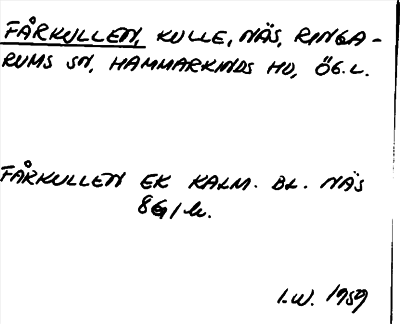 FÅRKULLEN, KULLE, NÄS, RINGA-
RUMS SN, HAMMARKINDS HD, ÖG.L.
FÅRKULLEN EK KALM. BL. NÄS
I.W. 1959